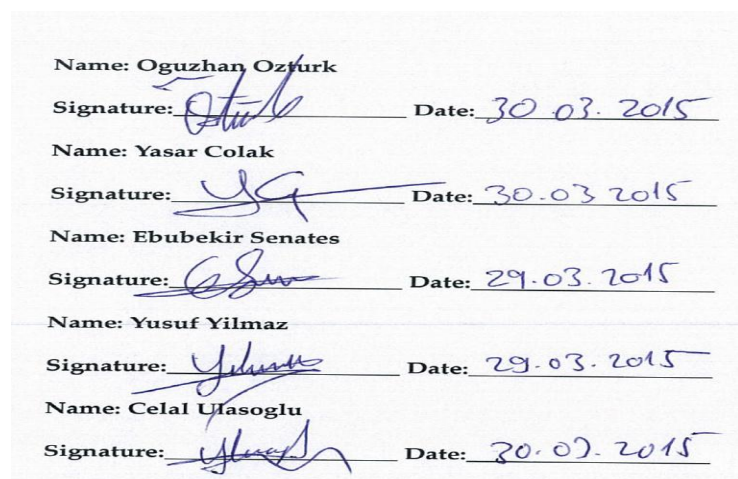 Name: Oguzhan Ozturk
Signature: Date: 30 03. 2015
Name: Yasar Colak
Signature: Date: 30.03 2015
Name: Ebubekir Senates
Signature: Date: 29.03.2015
Name: Yusuf Yilmaz
Signature: Date: 29.03.2015
Name: Celal Ulasoglu
Signature: Date: 30. 2015